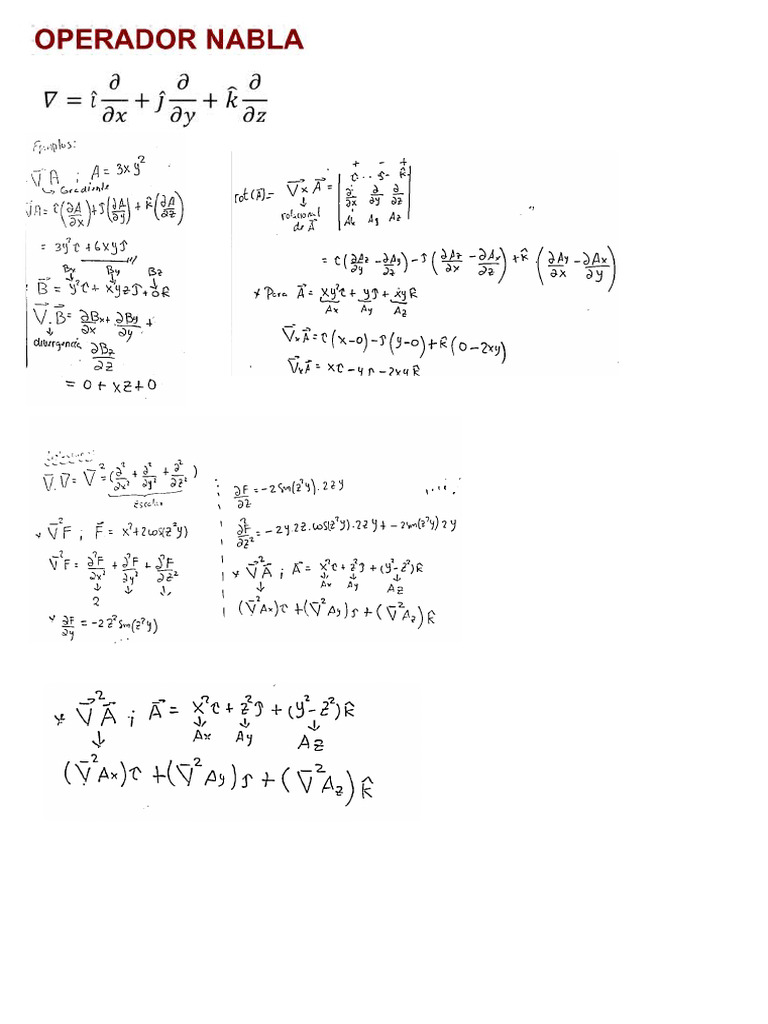 OPERADOR NABLA
∇ = î ∂/∂x + ĵ ∂/∂y + k̂ ∂/∂z
Ejemplos:
∇A ; A = 3xy²
↳ Gradiente
∇A = î(∂A/∂x) + ĵ(∂A/∂y) + k̂(∂A/∂z)
= 3y² î + 6xy ĵ
Bx By Bz
B⃗ = y² î + xyz ĵ + 0 k̂
∇⃗.B⃗ = ∂Bx/∂x + ∂By/∂y +
divergencia ∂Bz/∂z
= 0 + xz + 0
+ - +
rot(A⃗) = ∇⃗ x A⃗ = | î ĵ k̂ |
| ∂/∂x ∂/∂y ∂/∂z |
| Ax Ay Az |
rotacional
de A⃗
= î(∂Az/∂y - ∂Ay/∂z) - ĵ(∂Az/∂x - ∂Ax/∂z) + k̂(∂Ay/∂x - ∂Ax/∂y)
* Para A⃗ = xy² î + y ĵ + xy k̂
Ax Ay Az
∇⃗xA⃗ = î(x-0) - ĵ(y-0) + k̂(0-2xy)
∇⃗xA⃗ = x î - y ĵ - 2xy k̂
∇⃗.∇⃗ = ∇⃗² = (∂²/∂x² + ∂²/∂y² + ∂²/∂z²)
Escalar
* ∇⃗²F ; F⃗ = x² + 2cos(z²y)
∇⃗²F = ∂²F/∂x² + ∂²F/∂y² + ∂²F/∂z²
2
* ∂F/∂y = -2z² sen(z²y)
...
∂F/∂z = -2sen(z²y).2zy
∂²F/∂z² = -2y.2z.cos(z²y).2zy + -2sen(z²y)2y
* ∇⃗²A⃗ ; A⃗ = x² î + z² ĵ + (y²-z²) k̂
Ax Ay Az
(∇⃗²Ax) î + (∇⃗²Ay) ĵ + (∇⃗²Az) k̂
* ∇⃗²A⃗ ; A⃗ = x² î + z² ĵ + (y²-z²) k̂
Ax Ay Az
(∇⃗²Ax) î + (∇⃗²Ay) ĵ + (∇⃗²Az) k̂